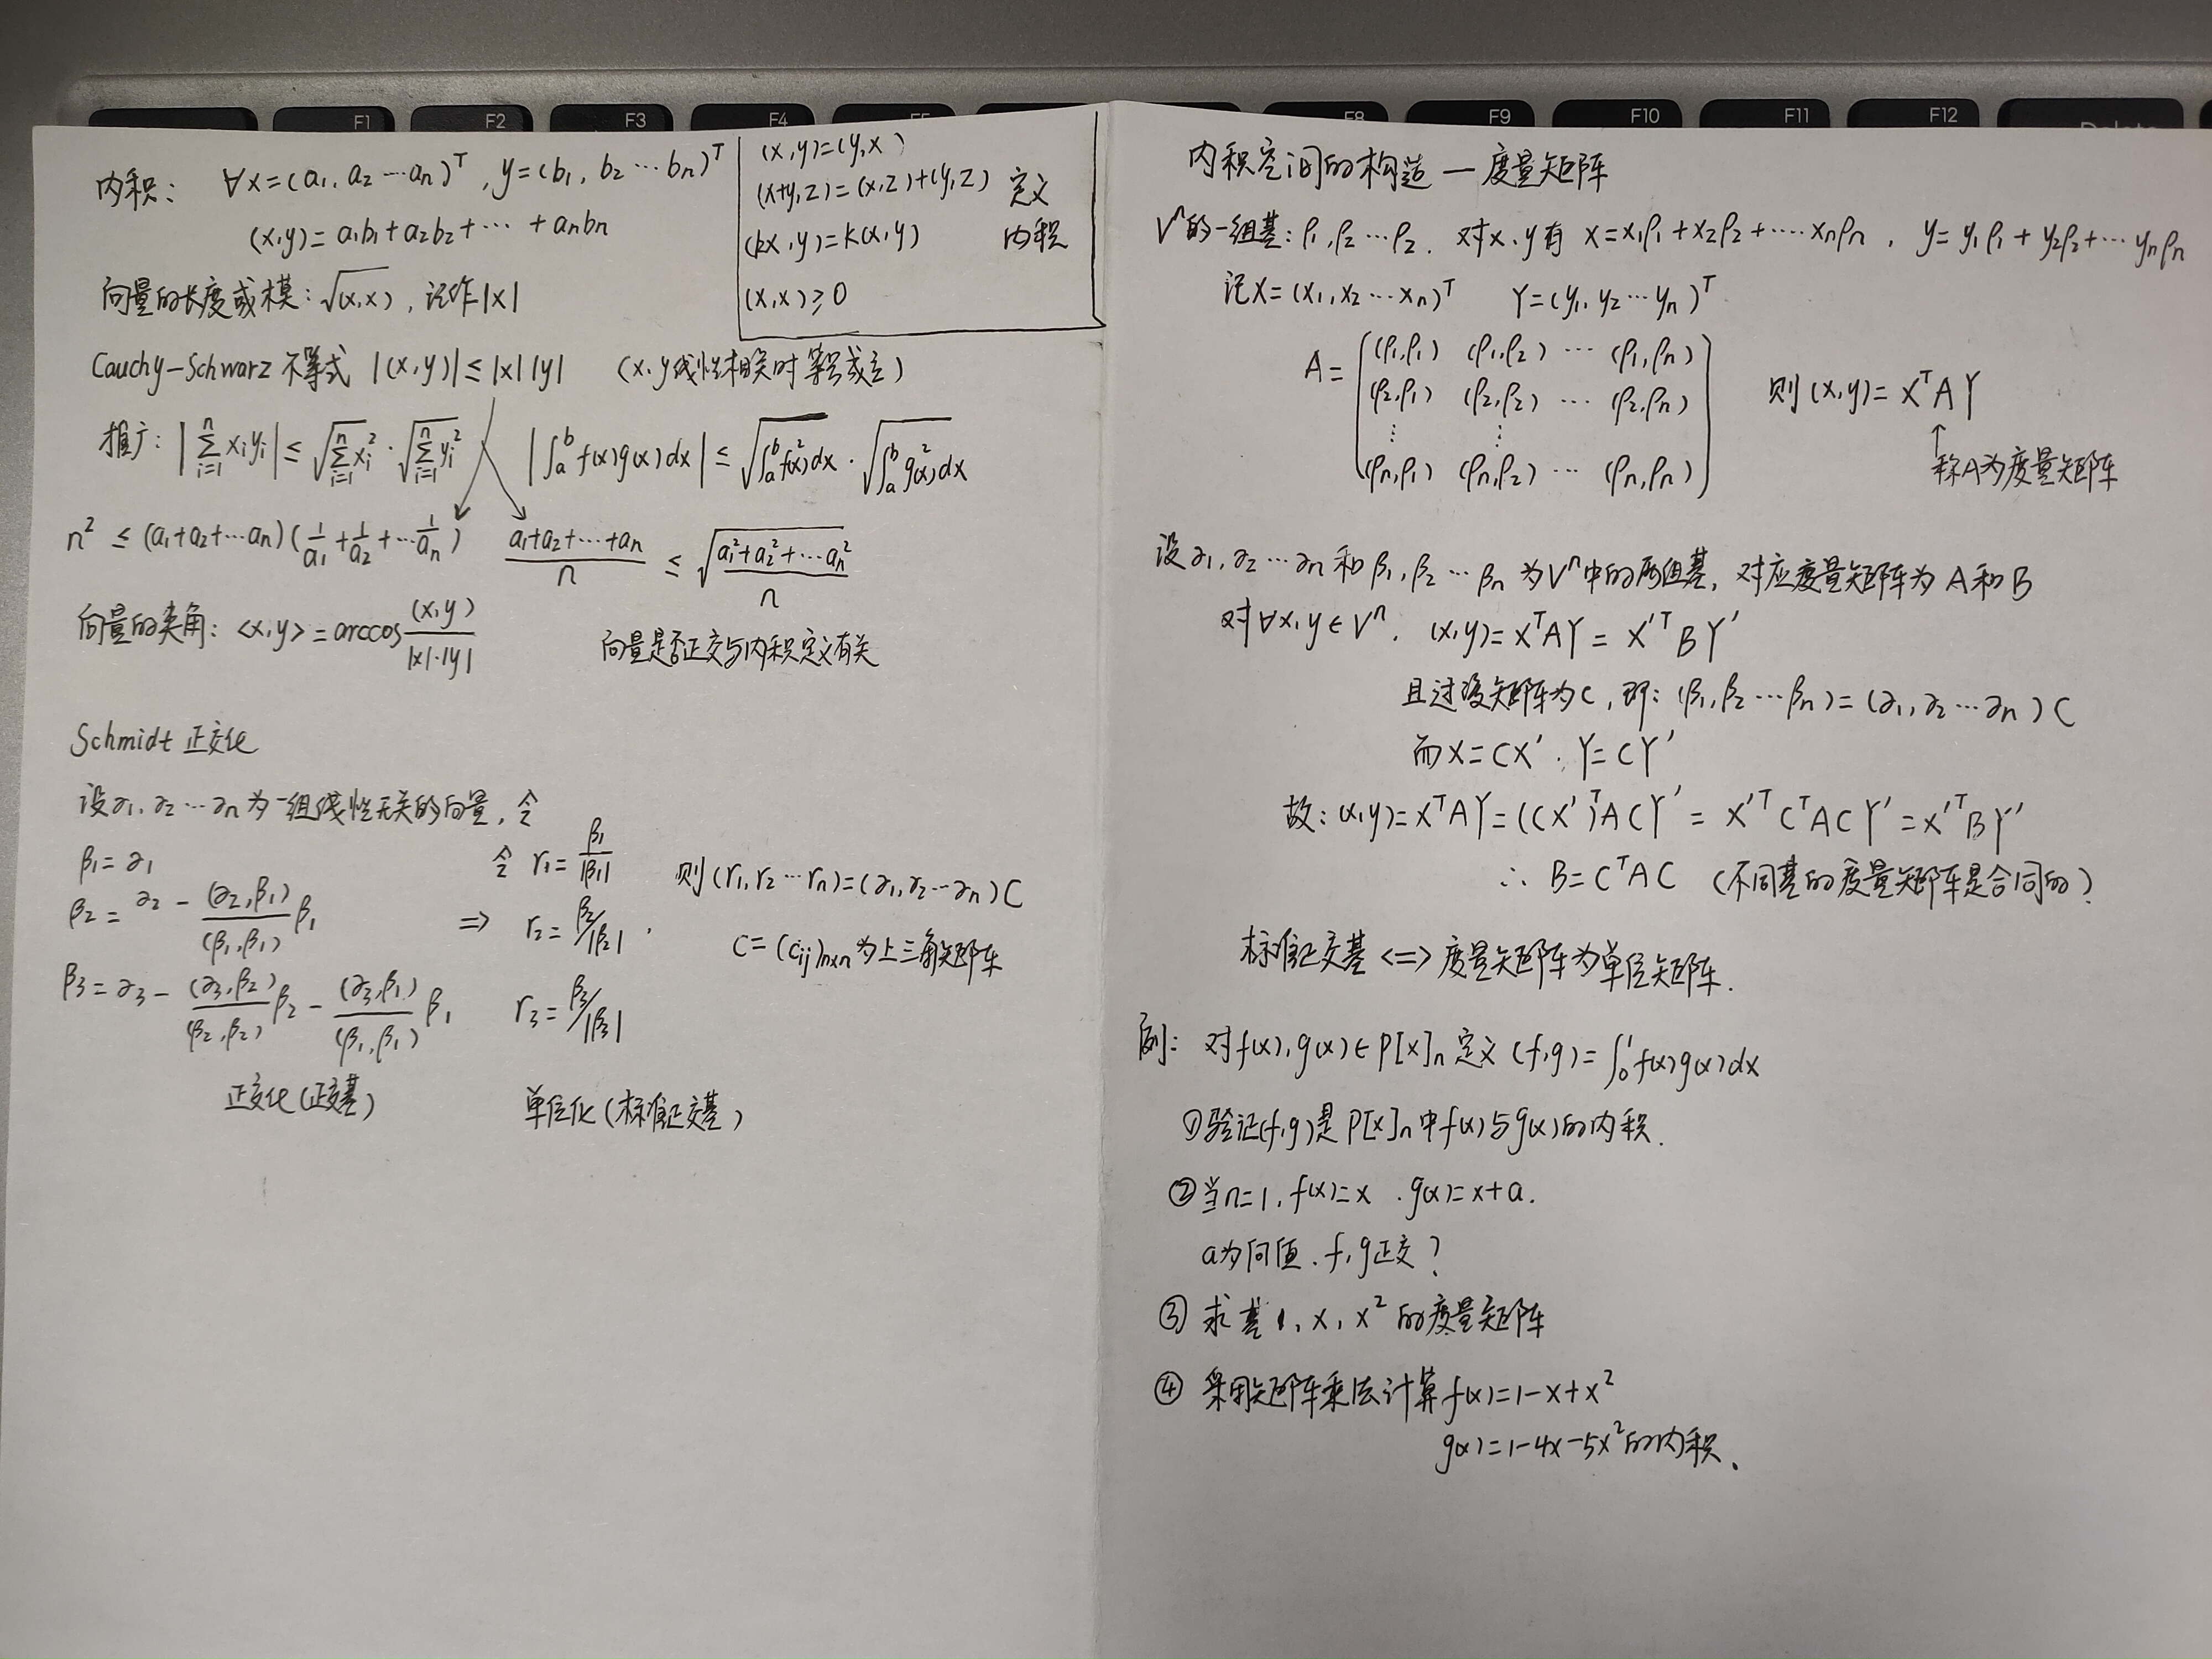 F1 F2 F3 F4 F8 F9 F10 F11 F12
内积: ∀x=(a₁, a₂ ⋯aₙ)ᵀ, y=(b₁, b₂ ⋯ bₙ)ᵀ
(x,y)= a₁b₁+a₂b₂+⋯ +aₙbₙ
(x,y)=(y,x)
(x+y,z)=(x,z)+(y,z) 定义
(kx,y)=k(x,y) 内积
(x,x)≥0
向量的长度或模: √(x,x), 记作|x|
Cauchy-Schwarz 不等式 |(x,y)|≤|x||y| (x,y线性相关时等号成立)
推广: |∑ᵢ₌₁ⁿ xᵢyᵢ| ≤ √(∑ᵢ₌₁ⁿ xᵢ²) · √(∑ᵢ₌₁ⁿ yᵢ²) |∫ₐᵇ f(x)g(x)dx| ≤ √(∫ₐᵇ f²(x)dx) · √(∫ₐᵇ g²(x)dx)
n² ≤ (a₁+a₂+⋯aₙ)(1/a₁+1/a₂+⋯1/aₙ) (a₁+a₂+⋯+aₙ)/n ≤ √((a₁²+a₂²+⋯aₙ²)/n)
向量的夹角: <x,y>=arccos (x,y)/(|x|·|y|) 向量是否正交与内积定义有关
Schmidt 正交化
设α₁,α₂⋯αₙ为一组线性无关的向量, 令
β₁=α₁ 令 r₁=β₁/|β₁| 则(r₁,r₂⋯rₙ)=(α₁,α₂⋯αₙ)C
β₂=α₂ - (α₂,β₁)/(β₁,β₁) β₁ ⇒ r₂=β₂/|β₂|, C=(cᵢⱼ)ₙₓₙ为上三角矩阵
β₃=α₃ - (α₃,β₂)/(β₂,β₂) β₂ - (α₃,β₁)/(β₁,β₁) β₁ r₃=β₃/|β₃|
正交化(正交基) 单位化(标准正交基)
内积空间的构造—度量矩阵
Vⁿ的一组基: ρ₁,ρ₂⋯ρ₂. 对x,y有 x=x₁ρ₁+x₂ρ₂+⋯⋯xₙρₙ, y=y₁ρ₁+y₂ρ₂+⋯yₙρₙ
记X=(x₁,x₂⋯xₙ)ᵀ Y=(y₁,y₂⋯yₙ)ᵀ
(ρ₁,ρ₁) (ρ₁,ρ₂) ⋯ (ρ₁,ρₙ)
A= (ρ₂,ρ₁) (ρ₂,ρ₂) ⋯ (ρ₂,ρₙ) 则(x,y)=XᵀAY
⋮ ⋮
(ρₙ,ρ₁) (ρₙ,ρ₂) ⋯ (ρₙ,ρₙ) ↑称A为度量矩阵
设α₁,α₂⋯αₙ和β₁,β₂⋯βₙ为Vⁿ中的两组基, 对应度量矩阵为A和B
对∀x,y∈Vⁿ, (x,y)=XᵀAY=X'ᵀBY'
且过渡矩阵为C, 即: (β₁,β₂⋯βₙ)=(α₁,α₂⋯αₙ)C
而X=CX', Y=CY'
故: (x,y)=XᵀAY=(CX')ᵀACY'=X'ᵀCᵀACY'=X'ᵀBY'
∴ B=CᵀAC (不同基的度量矩阵是合同的)
标准正交基<=>度量矩阵为单位矩阵.
例: 对f(x),g(x)∈P[x]ₙ定义(f,g)=∫₀¹f(x)g(x)dx
①验证(f,g)是P[x]ₙ中f(x)与g(x)的内积.
②当n=1, f(x)=x, g(x)=x+a.
a为何值, f,g正交?
③ 求基1, x, x² 的度量矩阵
④ 采用矩阵乘法计算f(x)=1-x+x²
g(x)=1-4x-5x²的内积.